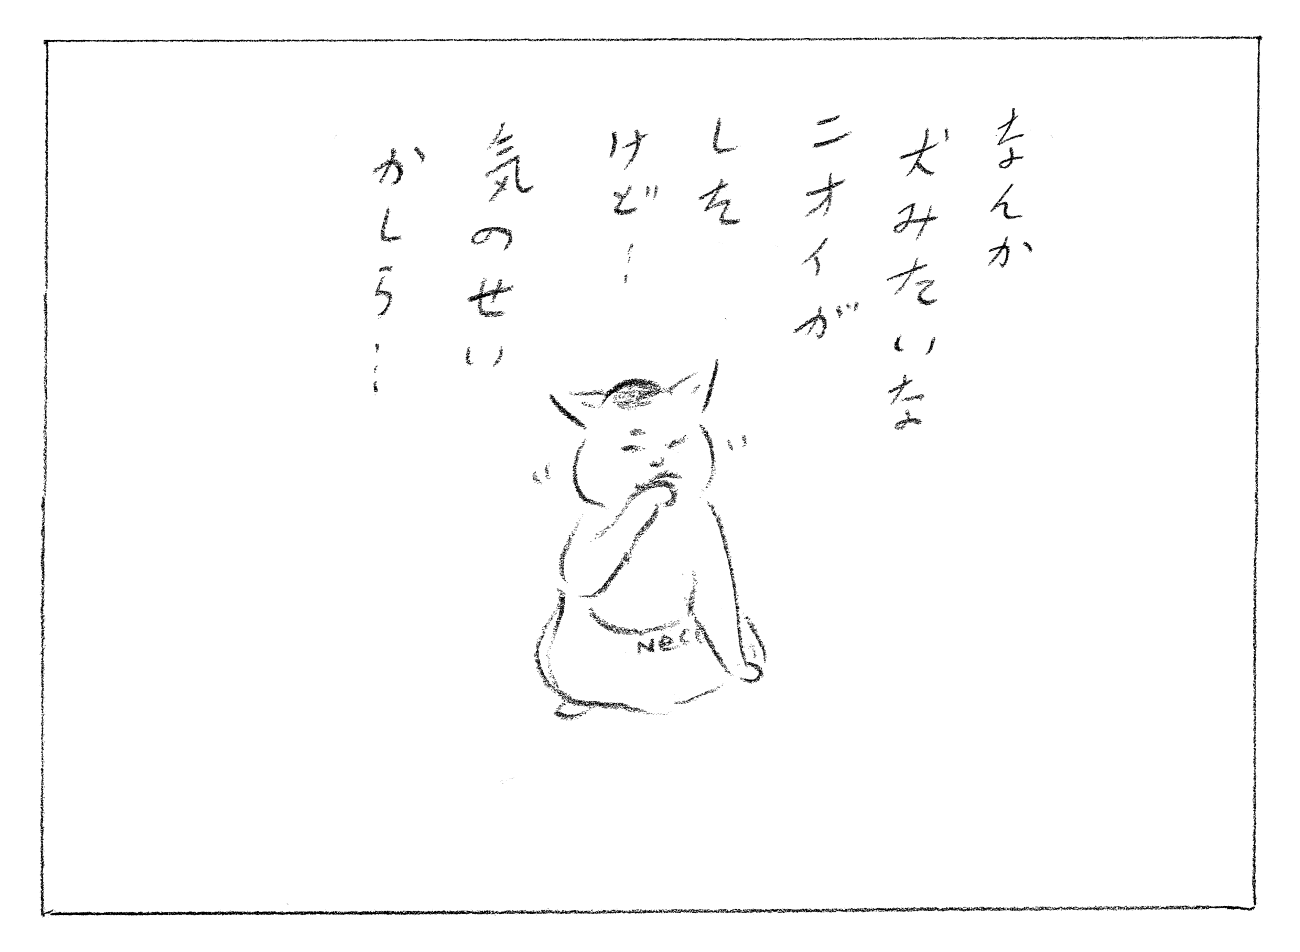 なんか
犬みたいな
ニオイが
した
けど…
気のせい
かしら…
Nec